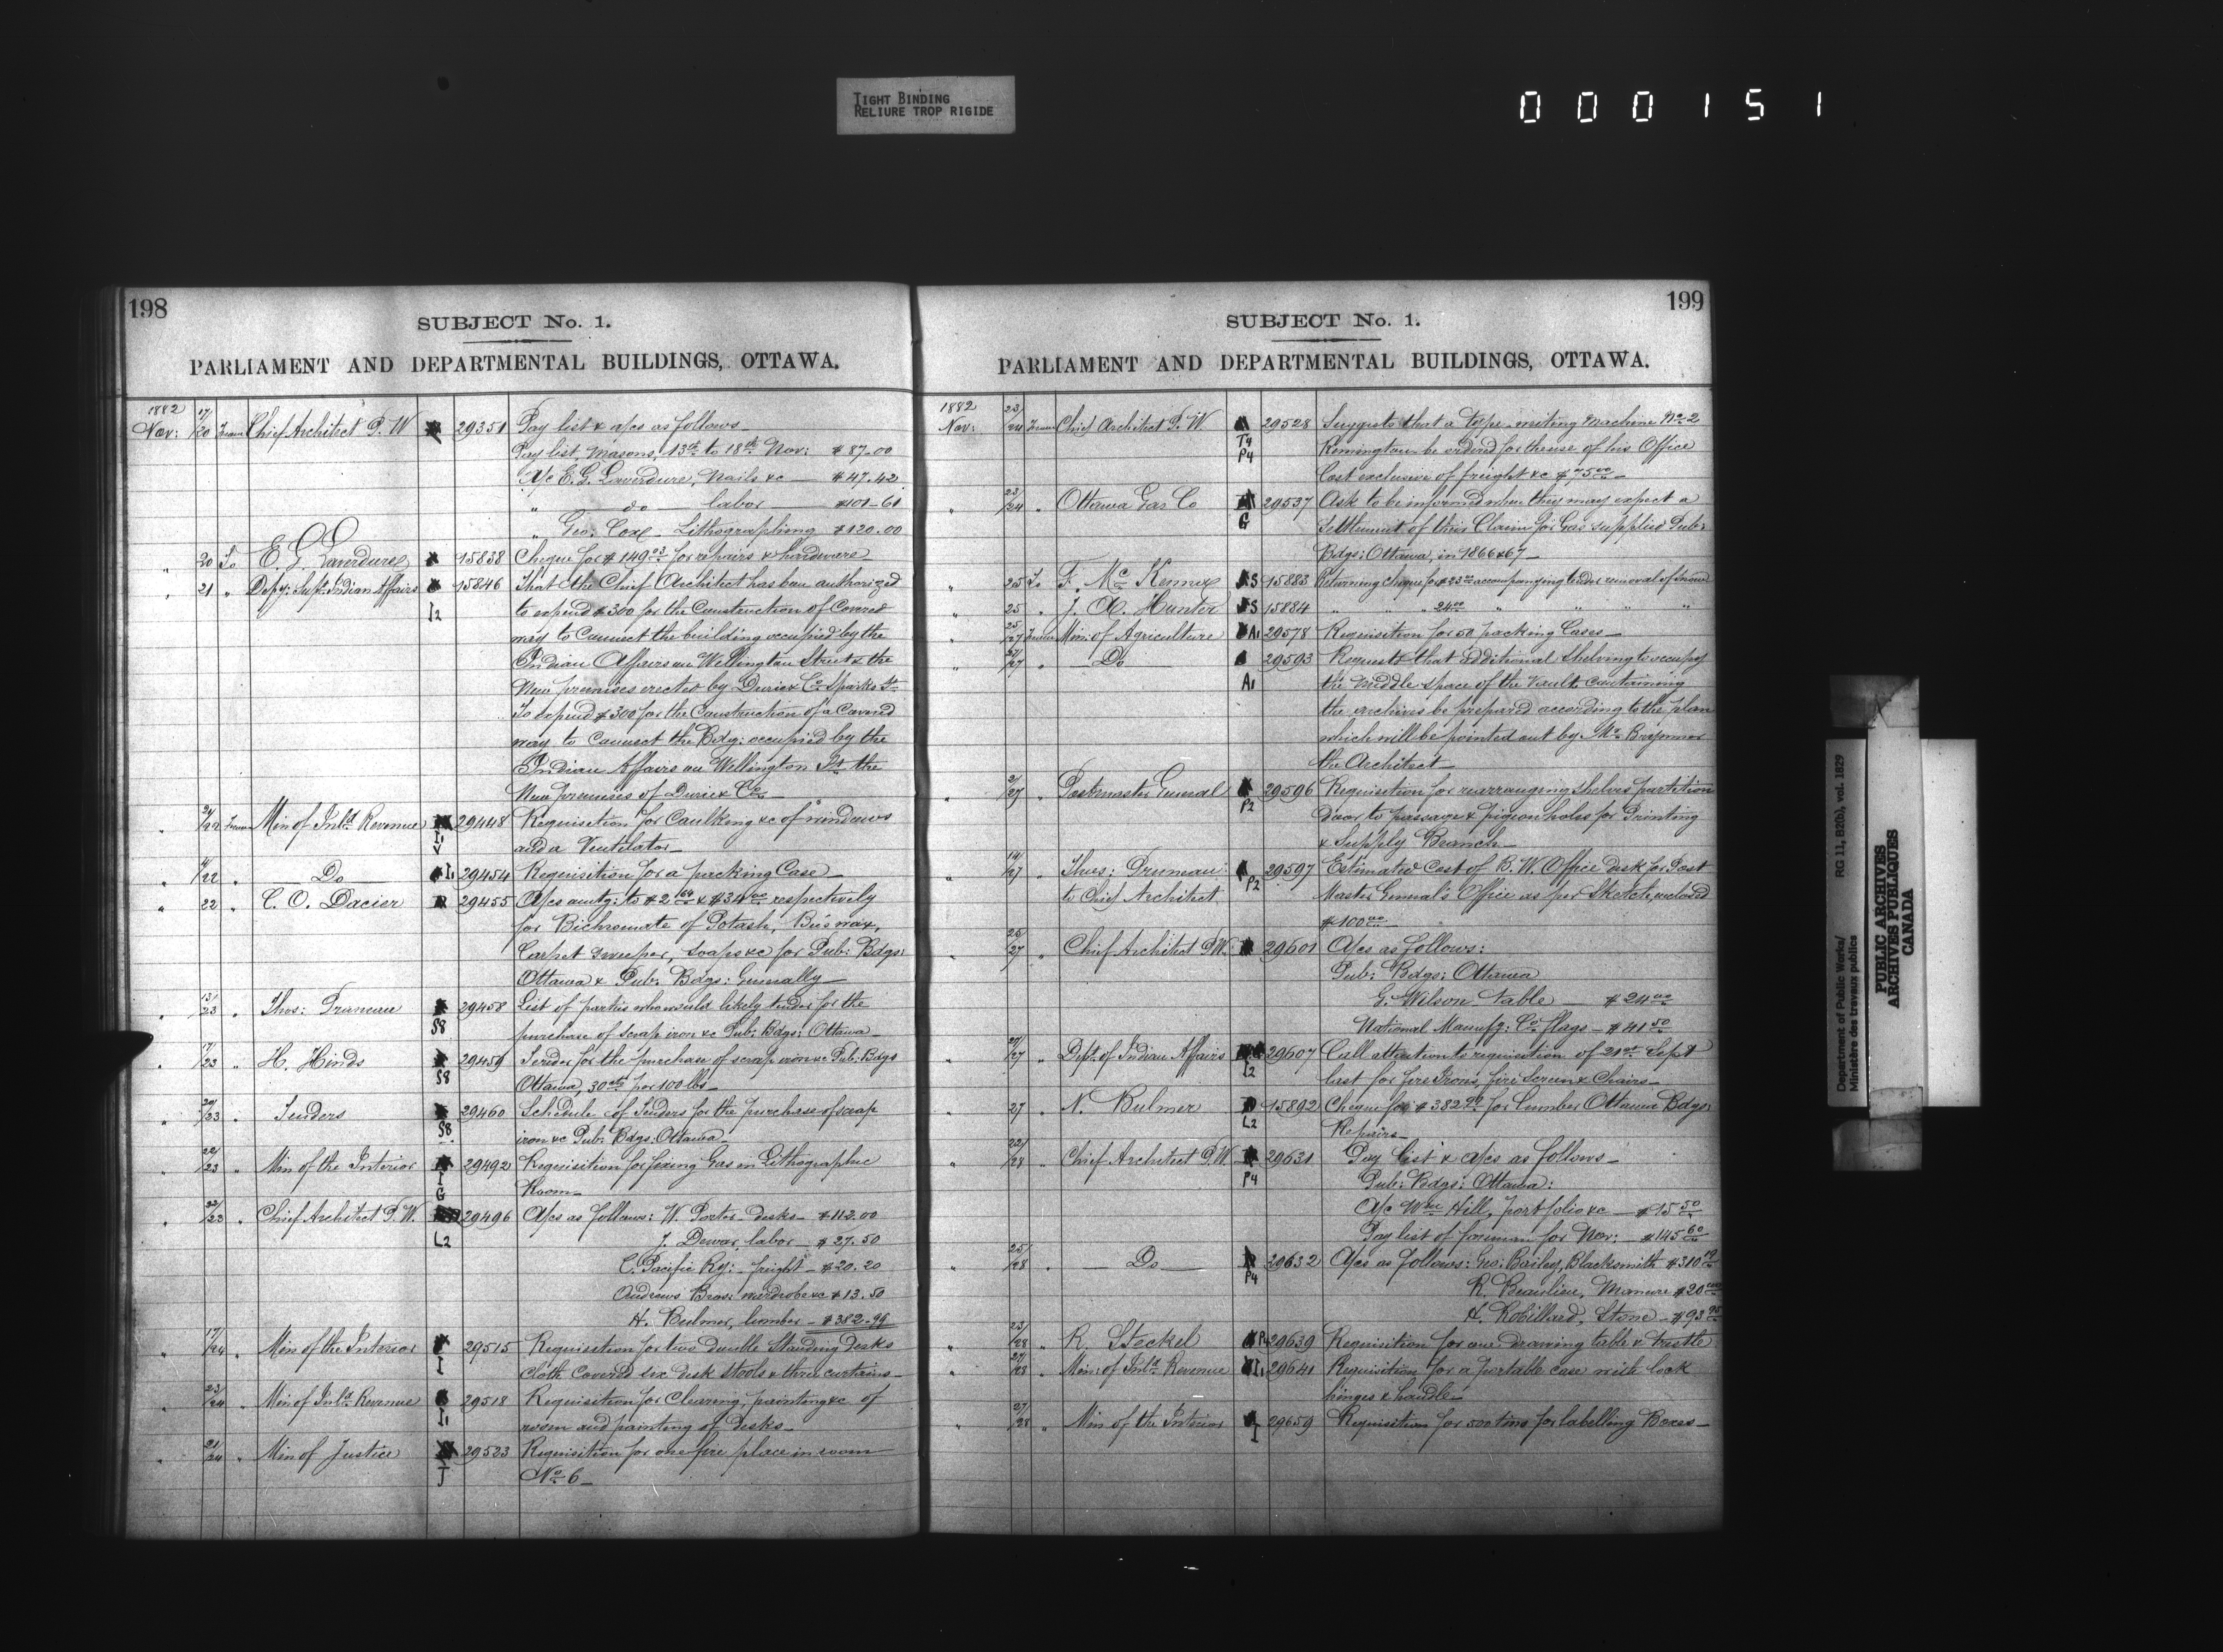 TIGHT BINDING
RELIURE TROP RIGIDE
000151
198
SUBJECT No. 1.
PARLIAMENT AND DEPARTMENTAL BUILDINGS, OTTAWA.
1882
Nov: 17/20 From Chief Architect P. W 29351 Pay list & a/cs as follows
Pay list, Masons, 13th to 18th Nov: $87.00
A/c E. G. Laverdure, Nails &c — $47.42
" do labor $101-61
" Geo. Cox Lithographing $120.00
" 20 To E. G. Laverdure 15838 Cheque for $149.03 for repairs & hardware
" 21 " Depy: Supt. Indian Affairs 15846 That the Chief Architect has been authorized
I2 to expend $300 for the Construction of Covered
way to Connect the building occupied by the
Indian Affairs on Wellington Street & the
New premises erected by Durie & Co. Sparks St.
To expend $300 for the Construction of a Covered
way to Connect the Bdg: occupied by the
Indian Affairs on Wellington St. the
New premises of Durie & Co.
" 21/22 From Min of Inld. Revenue 29448 Requisition for Caulking &c of windows
I1 V and a Ventilator
" 11/22 " Do I1 29454 Requisition for a packing Case
" 22 " C. O. Dacier 29455 A/cs amtg: to $2.64 & $34.00 respectively
for Bichromate of Potash, Bees wax,
Carpet Sweeper, Soaps &c for Pub: Bdgs:
Ottawa & Pub: Bdgs: Generally
" 13/23 " Thos: Drumeau 29458 List of parties who would likely tender for the
S8 purchase of scrap iron &c Pub: Bdgs: Ottawa
" 17/23 " H. Hinds 29459 Tender for the purchase of scrap iron &c Pub: Bdgs
S8 Ottawa, 30cts per 100 lbs
" 20/23 " Tenders 29460 Schedule of Tenders for the purchase of scrap
S8 iron &c Pub: Bdgs: Ottawa
" 22/23 " Min of the Interior 29492 Requisition for fixing Gas in Lithographic
I G Room
" 22/23 " Chief Architect P. W. 29496 A/cs as follows: W. Porter desks $112.00
L2 J. Dewar, labor $27.50
C. Pacific Ry: freight $20.20
Andrews Bros: wardrobe &c $13.50
H. Bulmer, lumber $382.99
" 17/24 " Min of the Interior 29515 Requisition for two double Standing desks
I Cloth Covered six desk Stools & three curtains
" 23/24 " Min of Inld. Revenue 29518 Requisition for Cleaning, painting &c of
I1 room and painting of desks
" 21/24 " Min of Justice 29523 Requisition for one fire place in room
J No. 6
199
SUBJECT No. 1.
PARLIAMENT AND DEPARTMENTAL BUILDINGS, OTTAWA.
1882
Nov: 23/24 From Chief Architect P. W 29528 Suggests that a Type writing Machine No. 2
T4 P4 Remington be ordered for the use of his Office
Cost exclusive of freight &c
" 23/24 " Ottawa Gas Co 29537 Ask to be informed when they may expect a
G Settlement of their Claim for Gas supplied Pub:
Bdgs: Ottawa, in 1866 & 67
" 25 To F. McKenna S 15883 Returning cheque for $23.00 accompanying tender removal of snow
" 25 " J. A. Hunter S 15884 " " " 24.00 " " " "
" 25/27 From Min: of Agriculture A1 29578 Requisition for 50 packing Cases
" 27/27 " Do 29593 Requests that additional Shelving to occupy
A1 the Middle space of the Vault containing
the archives be prepared according to the plan
which will be pointed out by Mr. Brymner
the Architect
" 2/27 " Postmaster General 29596 Requisition for rearranging Shelves partition
P2 door to passage & pigeon holes for Printing
& Supply Branch
" 14/27 " Thos: Drumeau 29597 Estimated Cost of B. W. Office desk for Post
to Chief Architect P2 Master General's Office as per Sketch enclosed
$100.00
" 25/27 " Chief Architect P.W. 29601 A/cs as follows:
Pub: Bdgs: Ottawa
G. Wilson Table — $24.00
National Manufg: Co. flags — $41.50
" 27/27 " Dept. of Indian Affairs 29607 Call attention to requisition of 21st Sept
I2 last for fire Irons, fire Screen & Chairs
" 27 " N. Bulmer 15892 Cheque for $382.99 for Lumber Ottawa Bdgs:
L2 Repairs
" 22/28 " Chief Architect P.W. 29631 Pay list & a/cs as follows
P4 Pub: Bdgs: Ottawa:
A/c Wm Hill, portfolio &c — $15.50
Pay list of foreman for Nov: $145.60
" 25/28 " Do 29632 A/cs as follows: Geo: Bailey, Blacksmith $310.19
P4 R. Beaulieu, Manure $20.00
H. Robillard, Stone — $93.95
" 23/28 " R. Steckel P4 29639 Requisition for one drawing table & trestle
" 27/28 " Min: of Inld. Revenue I1 29641 Requisition for a portable case with lock
hinges & handle
" 27/28 " Min of the Interior I 29659 Requisition for 500 tins for labelling Boxes
Department of Public Works/ RG 11, B2(b), vol. 1829
Ministère des travaux publics
PUBLIC ARCHIVES
ARCHIVES PUBLIQUES
CANADA